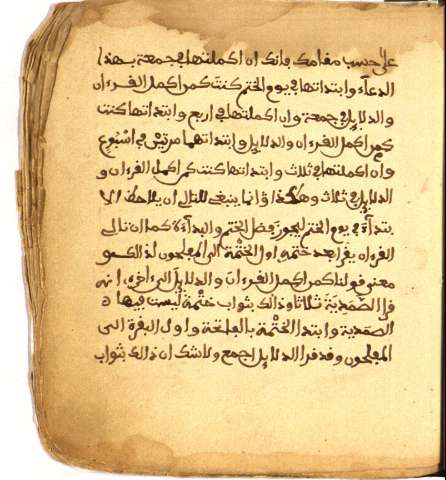 على حسب مقامك فانك ان اكملتها في جمعة بهذا
الدعاء وابتداتها في يوم الختم كنت كمن اكمل القرءان
والدلايل في جمعة وان اكملتها في اربع وابتداتها كنت
كمن اكمل القرءان والدلايل وابتداتهما مرتين في اسبوع
وان اكملتها في ثلاث وابتداتها كنت كمن اكمل القرءان و
الدلايل في ثلاث وهكذا وانما ينبغي للتالي ان يلاحظ الا
بتداء في يوم الختم ليحوز فضل الختم والبداة كما ان تالي
القرءان يقرا بعد ختمه اول الختمة الى المفلحون لذالك و
معنى قولنا كمن اكمل القرءان والدلايل الى اخره انه
قرا الصمدية ثلاثا وذالك بثواب ختمة ليست فيها
الصمدية وابتدا الختمة بالفاتحة واول البقرة الى
المفلحون وقد قرا الدلايل اجمع ولا شك ان ذالك بثواب